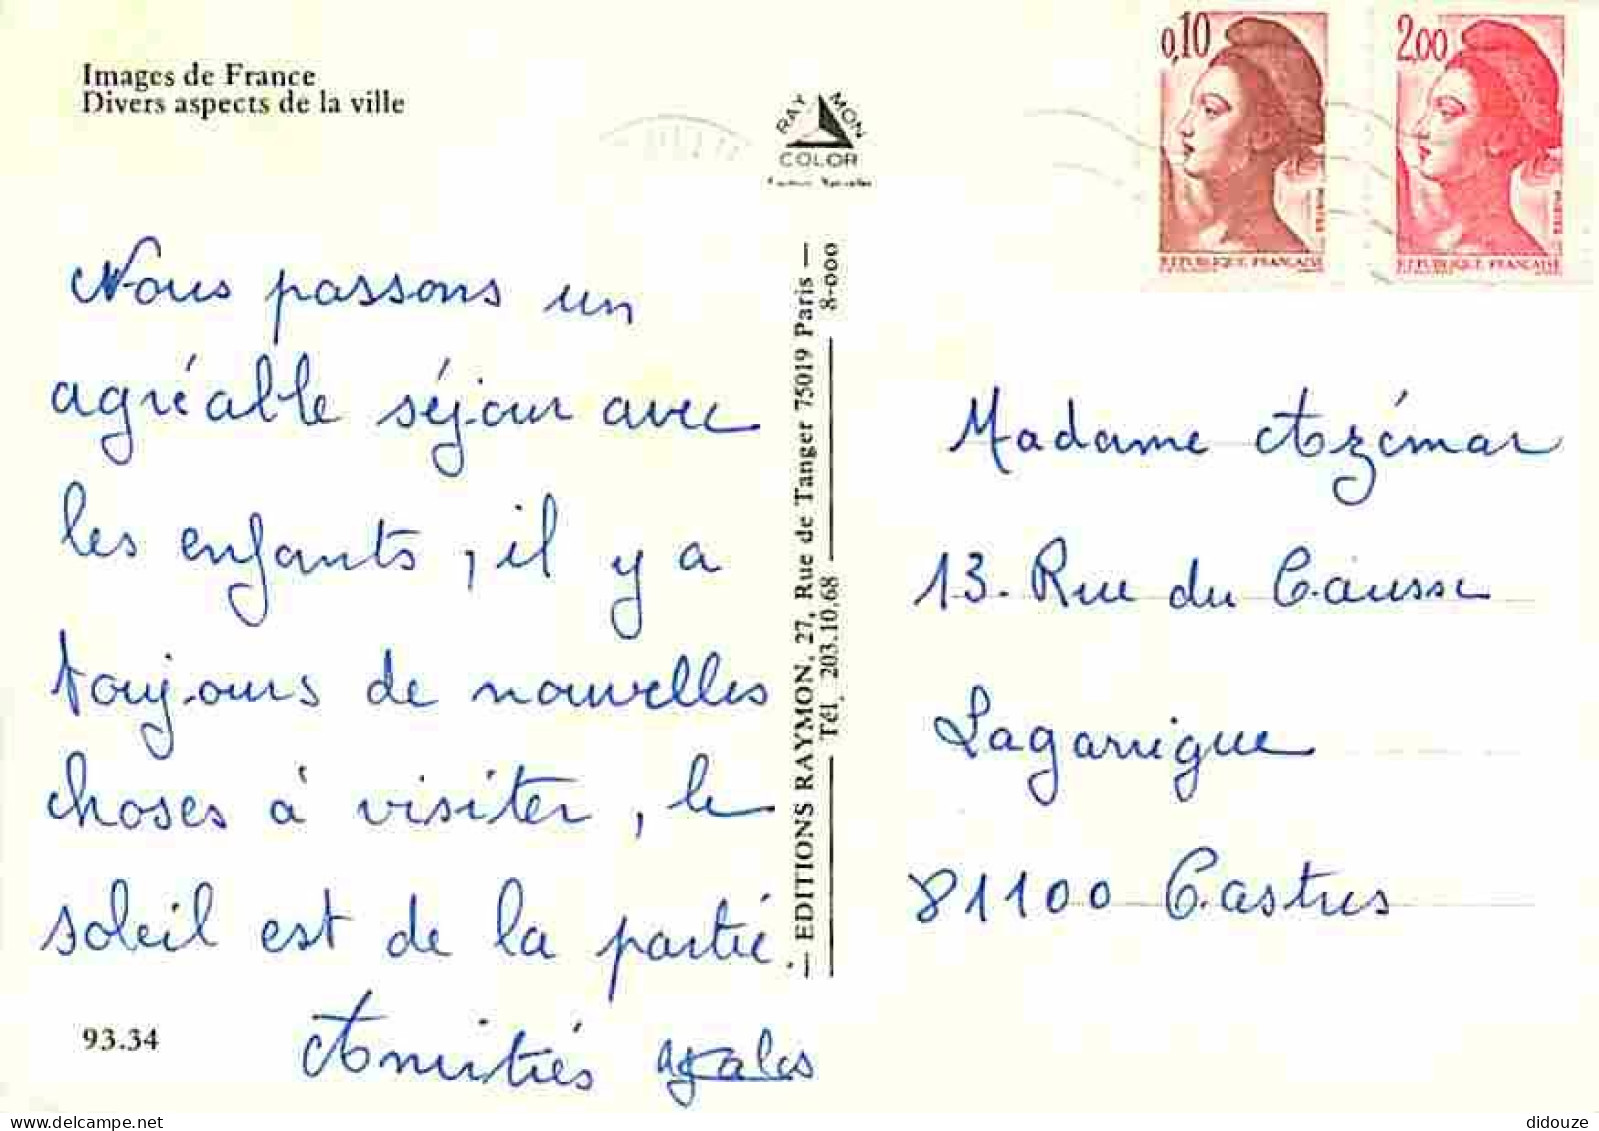 Images de France
Divers aspects de la ville
RAYMON
COLOR
0,10
REPUBLIQUE FRANÇAISE
2,00
REPUBLIQUE FRANÇAISE
Nous passons un
agréable séjour avec
les enfants, il y a
toujours de nouvelles
choses à visiter, le
soleil est de la partié.
Amitiés
93.34
— EDITIONS RAYMON, 27, Rue de Tanger 75019 Paris —
Tél. 203.10.68
8-000
Madame Azémar
13. Rue du Causse
Lagarrigue
81100 Castres
didouze